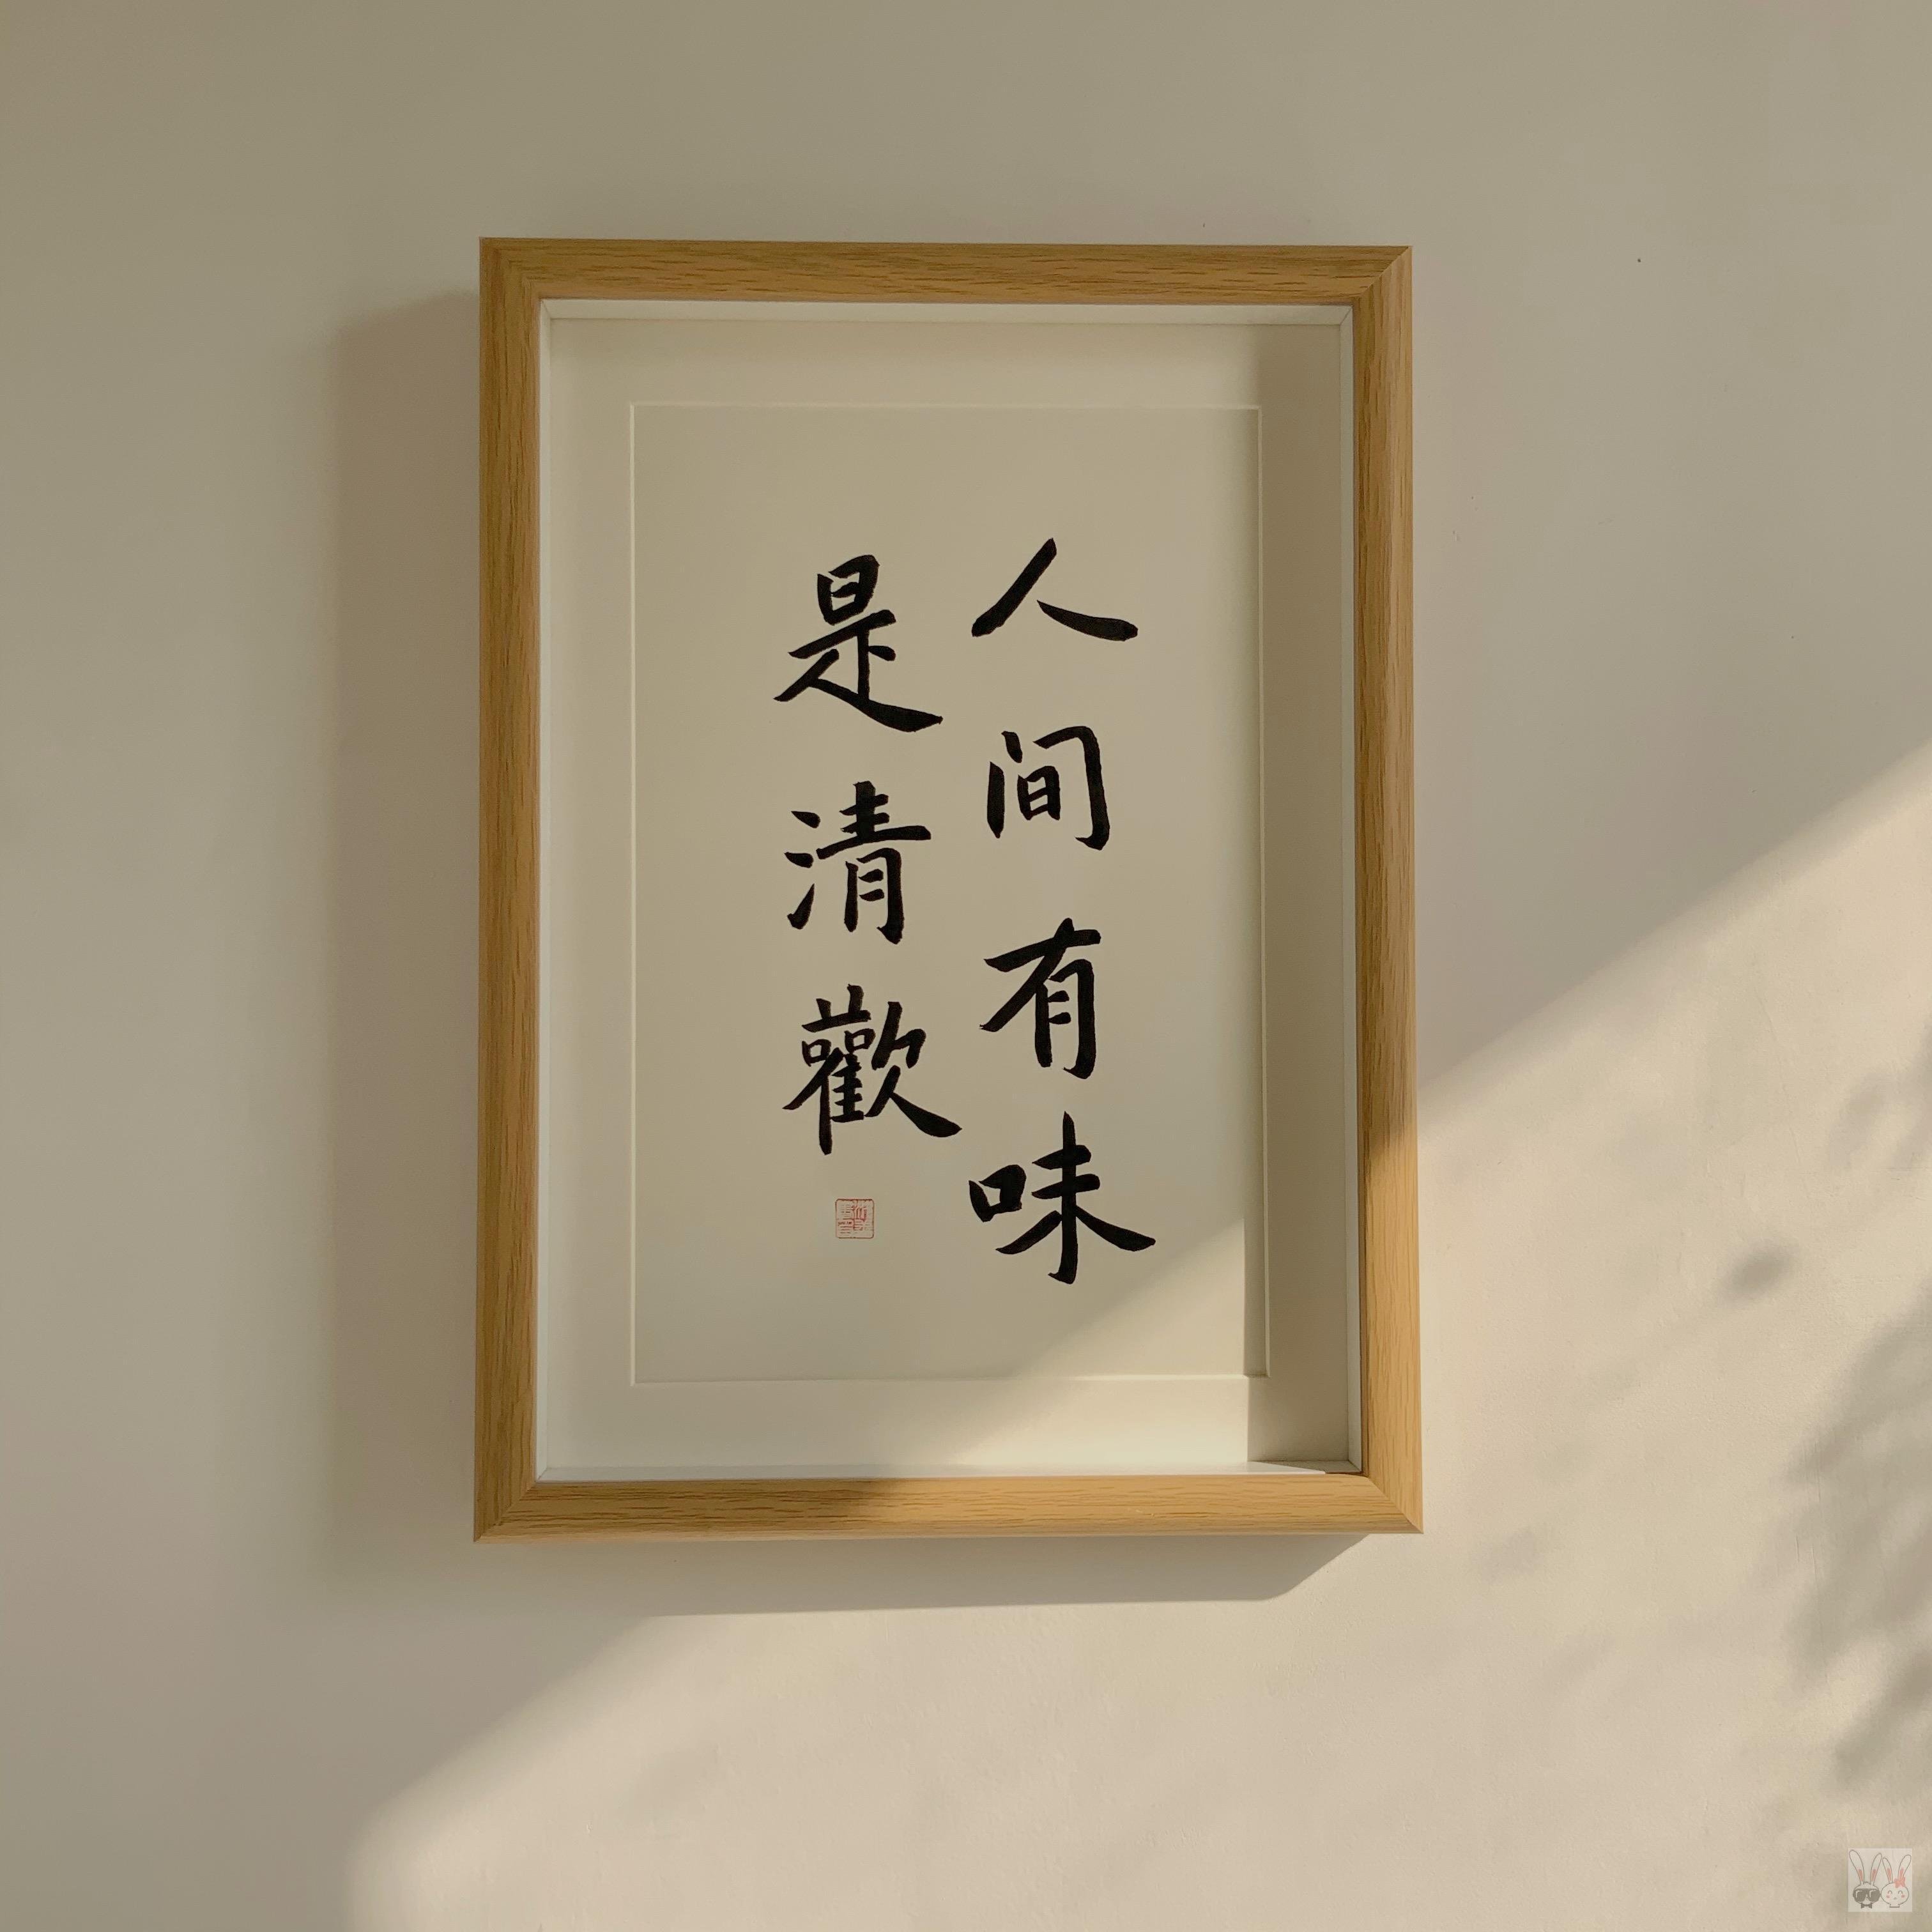 人间有味
是清歡